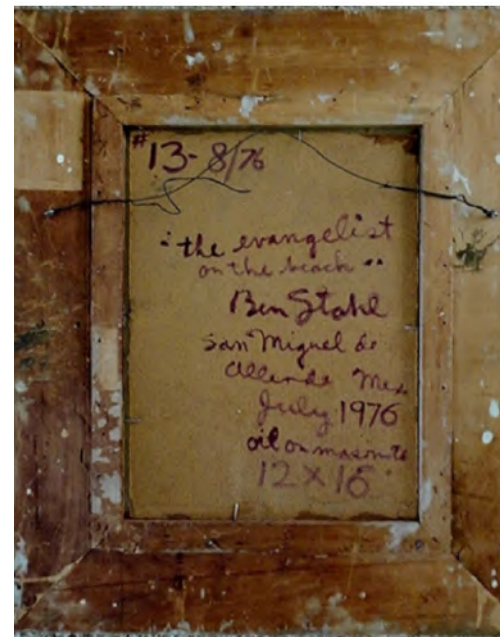 #13-8/76
"the evangelist
on the beach"
Ben Stahl
San Miguel de
Allende Mex
July 1976
oil on masonite
12 x 16